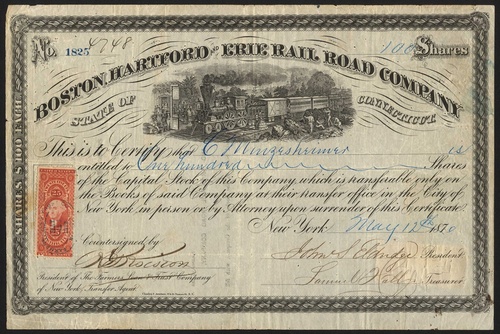 No. 1825 4748 100 Shares
BOSTON, HARTFORD AND ERIE RAIL ROAD COMPANY
STATE OF CONNECTICUT.
SHARES $100 EACH
This is to Certify that C Minzesheimer is
entitled to One hundred Shares
of the Capital Stock of this Company which is transferable only on
the Books of said Company at their transfer office in the City of
New York, in person or by Attorney upon surrender of this Certificate.
New York May 12th 1870
Countersigned by
John S Eldridge President
President of The Farmers Loan & Trust Company
of New York, Transfer Agent
Treasurer
25 25